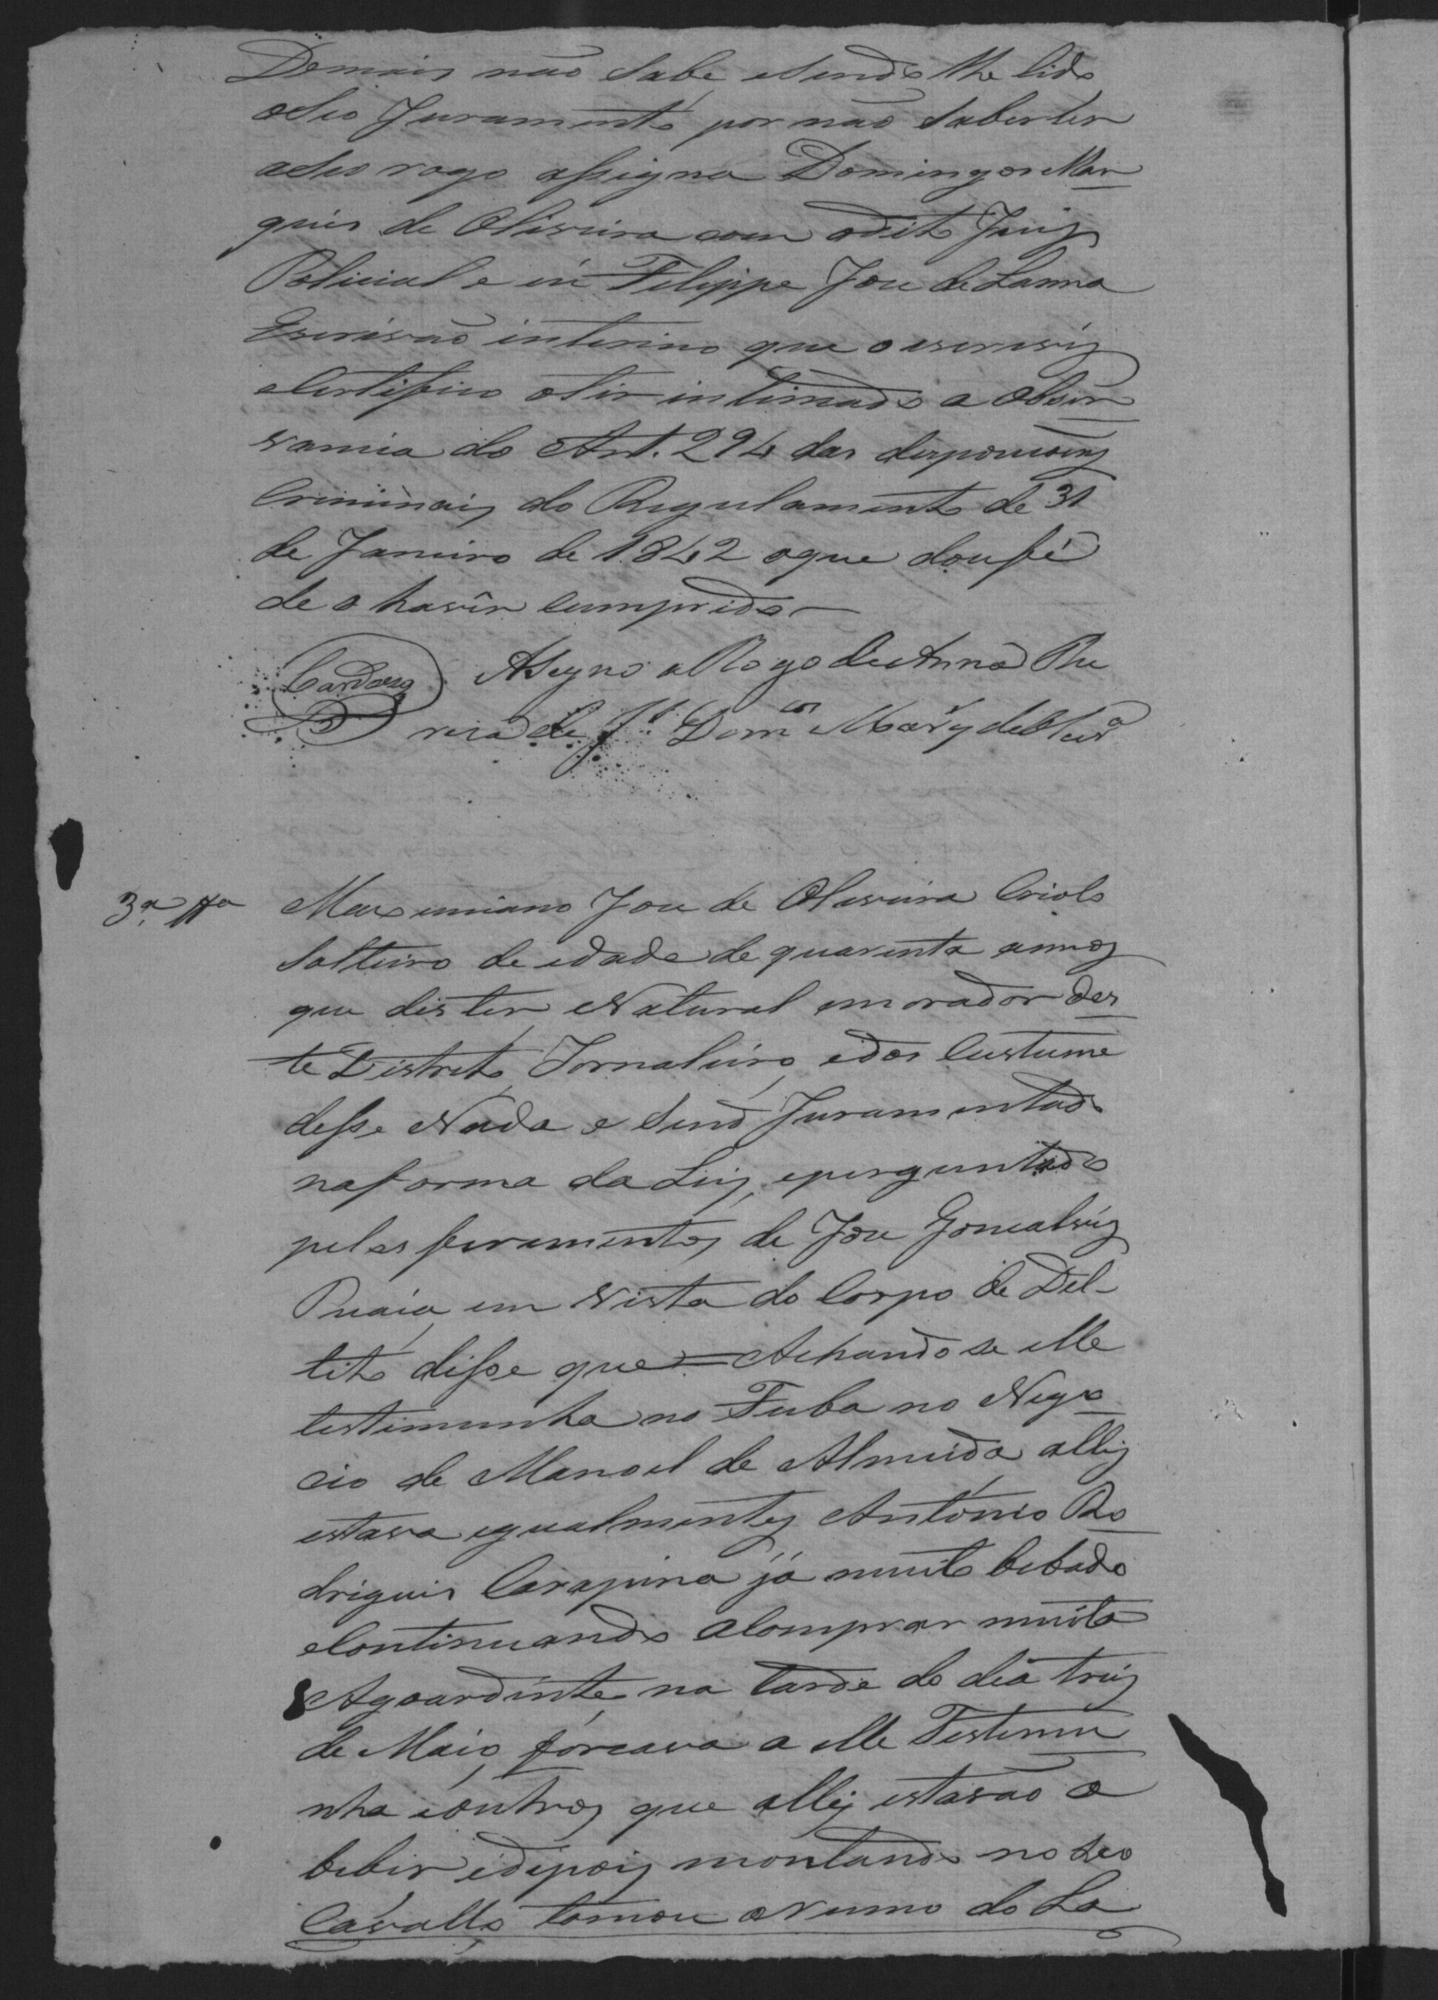 Demais não sabe e sendo lhe lido
o seo Juramento, por não saber ler
a seo rogo assigna Domingos Mar
ques de Oliveira com o dito Juiz
Policial e eu Felippe Jose de Lanna
Escrivão interino que o escreviz
e Certifico o ter intimado a Obser
vancia do Art. 294 das desposicoens
Criminais do Regulamento de 31
de Janeiro de 1842 o que dou fé
de o havêr cumprido
Cardozo Asigno a Rogo de Anna
de Js. Domos Marqs de Olivra
3.ª Ttª Maxemiano Jose de Olaveira Criolo
Solteiro de edade de quarenta annos
que dis ter Natural e morador des
te Distrito, Jornaleiro, e dos Custume
desse Nada e Send Juramentado
na forma da Leiz, e perguntado
pelos feramentos de Jose Goncalvez
em vista do Corpo de Del-
lito disse que = Achando se elle
testimunha no Fuba no Nego
cio de Manoel de Almeida alliz
estava igualmentez António Ro
drigues Carapina já muito bebado
e Continuando a Comprar muita
Agoardente, na tarde do dia treiz
de Maio, forcava a elle Testemu
nha e outros que alliz estavão a
beber e depois montando no seo
Cavallo tomou o rumo do La